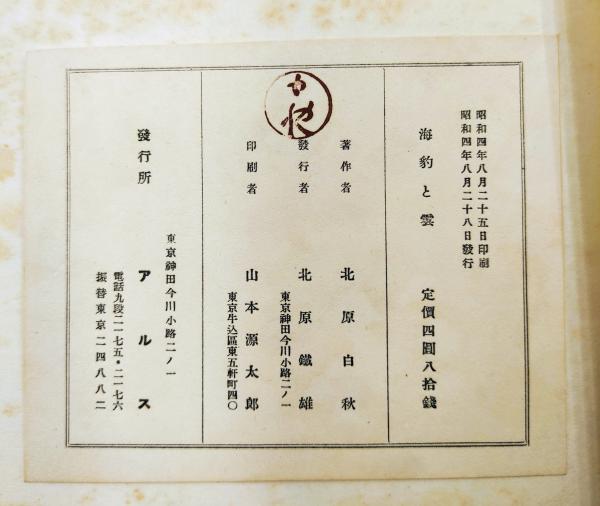 昭和四年八月二十五日印刷
昭和四年八月二十八日發行
海豹と雲　定價四圓八拾錢
著作者　北原白秋
發行者　北原鐵雄
東京神田今川小路二ノ一
印刷者　山本源太郎
東京牛込區東五軒町四〇
東京神田今川小路二ノ一
發行所　アルス
電話九段二一七五・二一七六
振替東京二四八八二